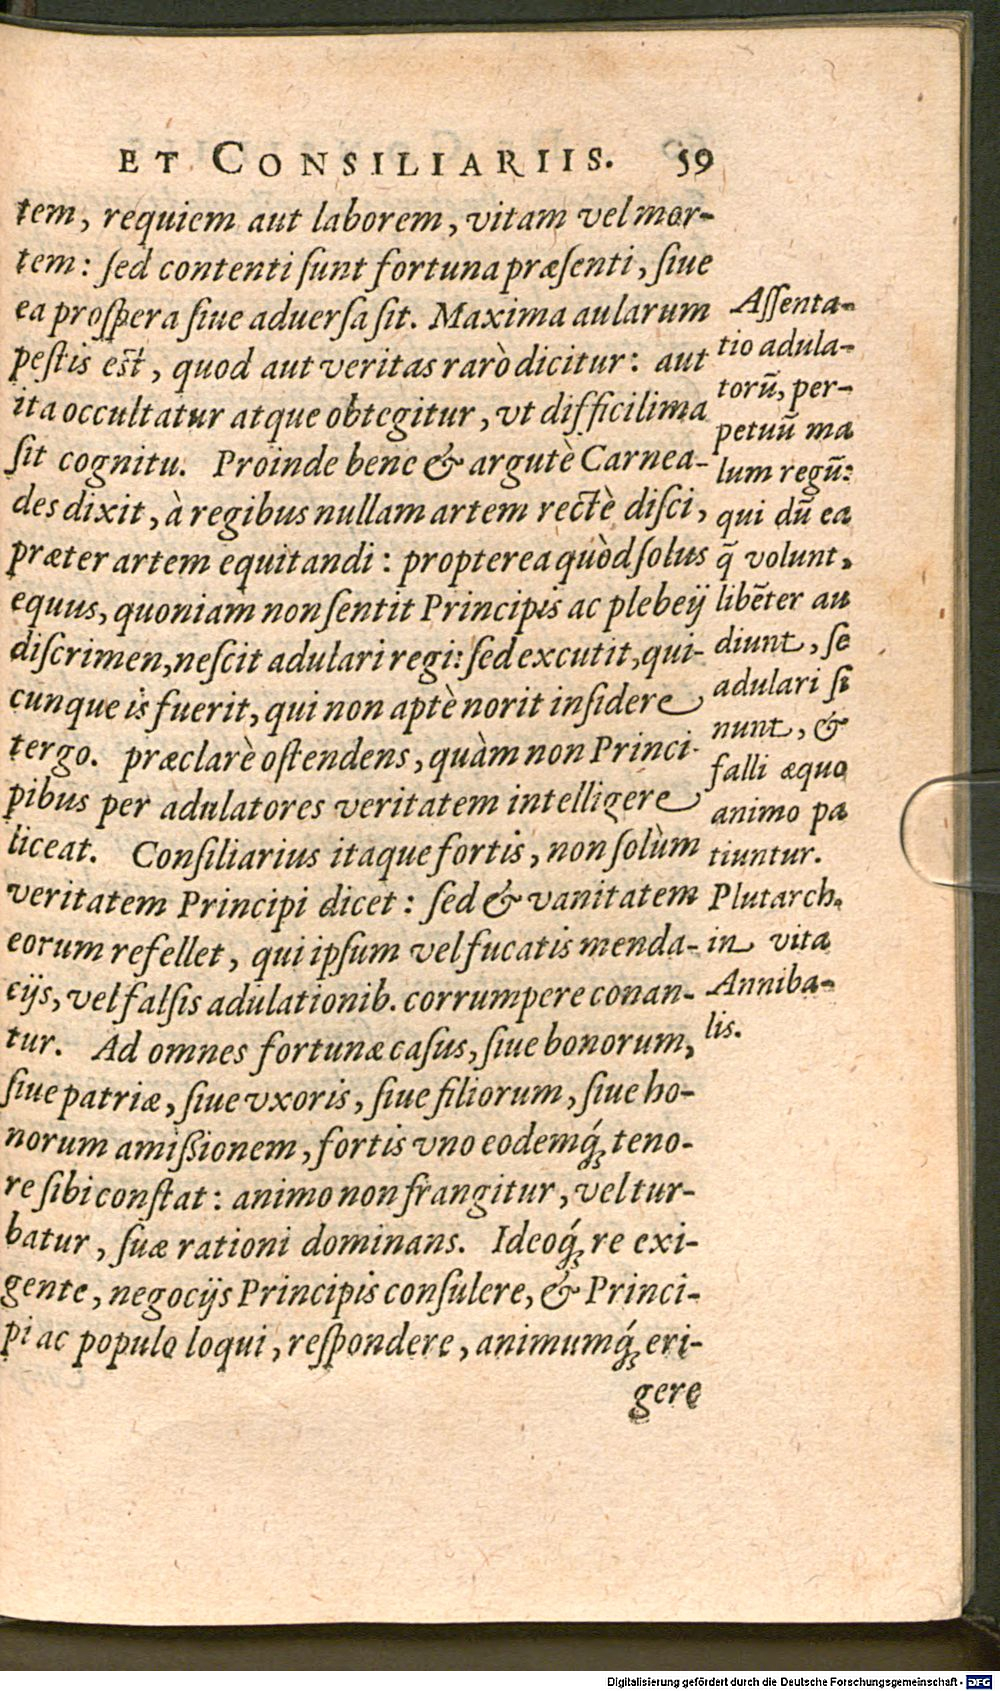 ET CONSILIARIIS. 59
tem, requiem aut laborem, vitam vel mor-
tem: ſed contenti ſunt fortuna præſenti, ſiue
ea proſpera ſiue aduerſa ſit. Maxima aularum
peſtis eſt, quod aut veritas rarò dicitur: aut
ita occultatur atque obtegitur, vt difficilima
ſit cognitu. Proinde bene & argutè Carnea-
des dixit, à regibus nullam artem rectè diſci,
præter artem equitandi: propterea quòd ſolus
equus, quoniam non ſentit Principis ac plebeij
diſcrimen, neſcit adulari regi: ſed excutit, qui-
cunque is fuerit, qui non aptè norit inſidere
tergo. præclarè oſtendens, quàm non Princi-
pibus per adulatores veritatem intelligere
liceat. Conſiliarius itaque fortis, non ſolùm
veritatem Principi dicet: ſed & vanitatem
eorum refellet, qui ipſum vel fucatis menda-
cijs, vel falſis adulationib. corrumpere conan-
tur. Ad omnes fortunæ caſus, ſiue bonorum,
ſiue patriæ, ſiue vxoris, ſiue filiorum, ſiue ho-
norum amißionem, fortis vno eodemq́; teno-
re ſibi conſtat: animo non frangitur, vel tur-
batur, ſuæ rationi dominans. Ideoq́; re exi-
gente, negocijs Principis conſulere, & Princi-
pi ac populo loqui, reſpondere, animumq́; eri-
gere
Aſſenta-
tio adula-
torũ, per-
petuũ ma
lum regũ:
qui dũ ea
q̃ volunt,
libẽter au
diunt, ſe
adulari ſi
nunt, &
falli æquo
animo pa
tiuntur.
Plutarch.
in vita
Anniba-
lis.
Digitalisierung gefördert durch die Deutsche Forschungsgemeinschaft - DFG